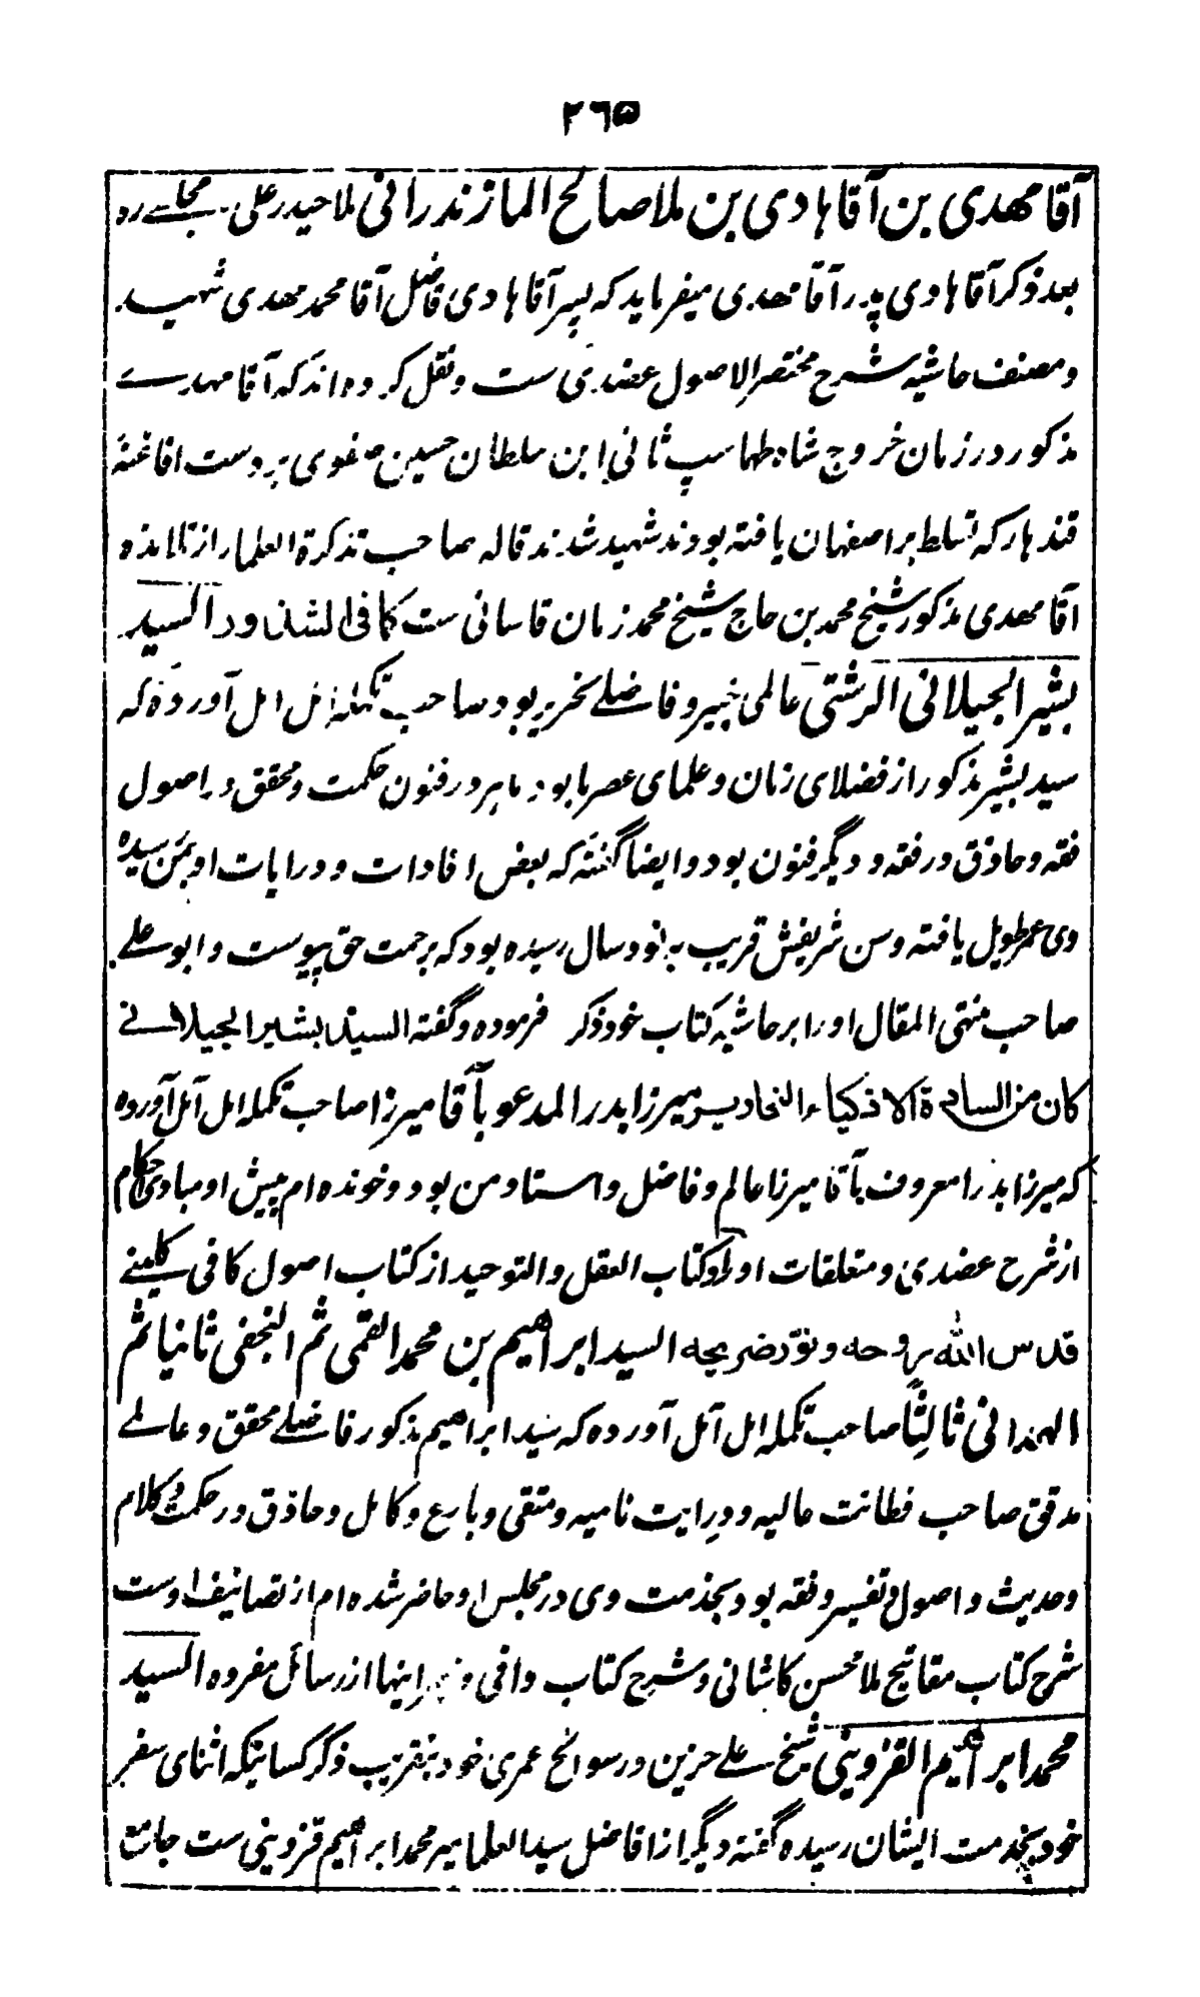 ٢٦٥
آقا مهدی بن آقا هادی بن ملا صالح المازندرانی ملا حیدر علی مجلسے رہ
بعد ذکر آقا هادی پدر آقا مهدی میفرماید که پسر آقا هادی فاضل آقا محمد مهدی شهید
ومصنف حاشیه شرح مختصر الاصول عضدی ست ونقل کرده اند که آقا مهدے
مذکور در زمان خروج شاه طهماسپ ثانی ابن سلطان حسین صفوی بر دست افاغنهٔ
قندهار که تسلط بر اصفهان یافته بودند شهید شدند قاله صاحب تذکرة العلما و از تلامذه
آقا مهدی مذکور شیخ محمد بن حاج شیخ محمد زمان قاسانی ست کما فی الشذور السید
بشیر الجیلانی الرشتی عالمی خبیر و فاضلے نحریر بود صاحب تکملهٔ امل امل آورده که
سید بشیر مذکور از فضلای زمان و علمای عصر ما بود ماهر در فنون حکمت و محقق در اصول
فقه و حاذق در فقه و دیگر فنون بود و ایضا گفته که بعض افادات و درایات او بمن رسیده
وی عمر طویل یافته و سن شریفش قریب به نود سال رسیده بود که برحمت حق پیوست و ابو علے
صاحب منتهی المقال او را بر حاشیه کتاب خود ذکر فرموده و گفته السید بشیر الجیلانے
کان من السادة الاذکیاء النحاریر میرزا بدر المدعو بآقا میرزا صاحب تکمله امل آمل آورده
که میرزا بدرا معروف بآقا میرزا عالم و فاضل و استاد من بود و خوانده ام پیش او مبادی احکام
از شرح عضدی و متعلقات او را و کتاب العقل و التوحید از کتاب اصول کافی کلینے
قدس الله روحه و نوّر ضریحه السید ابراهیم بن محمد القمی ثم النجفی ثانیا ثم
الهمدانی ثالثًا صاحب تکمله امل آمل آورده که سید ابراهیم مذکور فاضلے محقق و عالمے
مدقق صاحب فطانت عالیه و درایت نامیه و متقی و بارع و کامل و حاذق در حکمت و کلام
و حدیث و اصول و تفسیر و فقه بود بخدمت وی در مجلس او حاضر شده ام از تصانیف اوست
شرح کتاب مفاتیح ملا محسن کاشانی و شرح کتاب وافی و اینها از رسائل مفرده السید
محمد ابراهیم القزوینی شیخ علے حزین در سوانح عمری خود بتقریب ذکر کسانیکه اثنای سفر
خود بخدمت ایشان رسیده گفته دیگر از افاضل سید العلما میر محمد ابراهیم قزوینی ست جامع